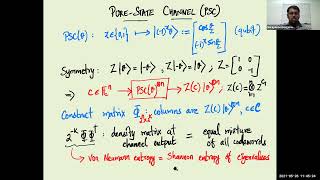 PURE-STATE CHANNEL (PSC)
PSC(θ): x∈{0,1} ↦ |(-1)^x θ⟩ := [cos θ/2 ; (-1)^x sin θ/2] (qubit)
Symmetry: Z|θ⟩ = |-θ⟩, Z|-θ⟩ = |θ⟩, Z = [1 0 ; 0 -1]
⇒ c∈ℂ → PSC(θ)^⊗n → Z(c)|θ⟩^⊗n, Z(c) =
Construct matrix Φ columns are Z(c)|θ⟩^⊗n, c∈C
2^-k Φ Φ^† : density matrix at channel output = equal mixture of all codewords
↪ Von Neumann entropy = Shannon entropy of eigenvalues
2021-05-26 11:45:24